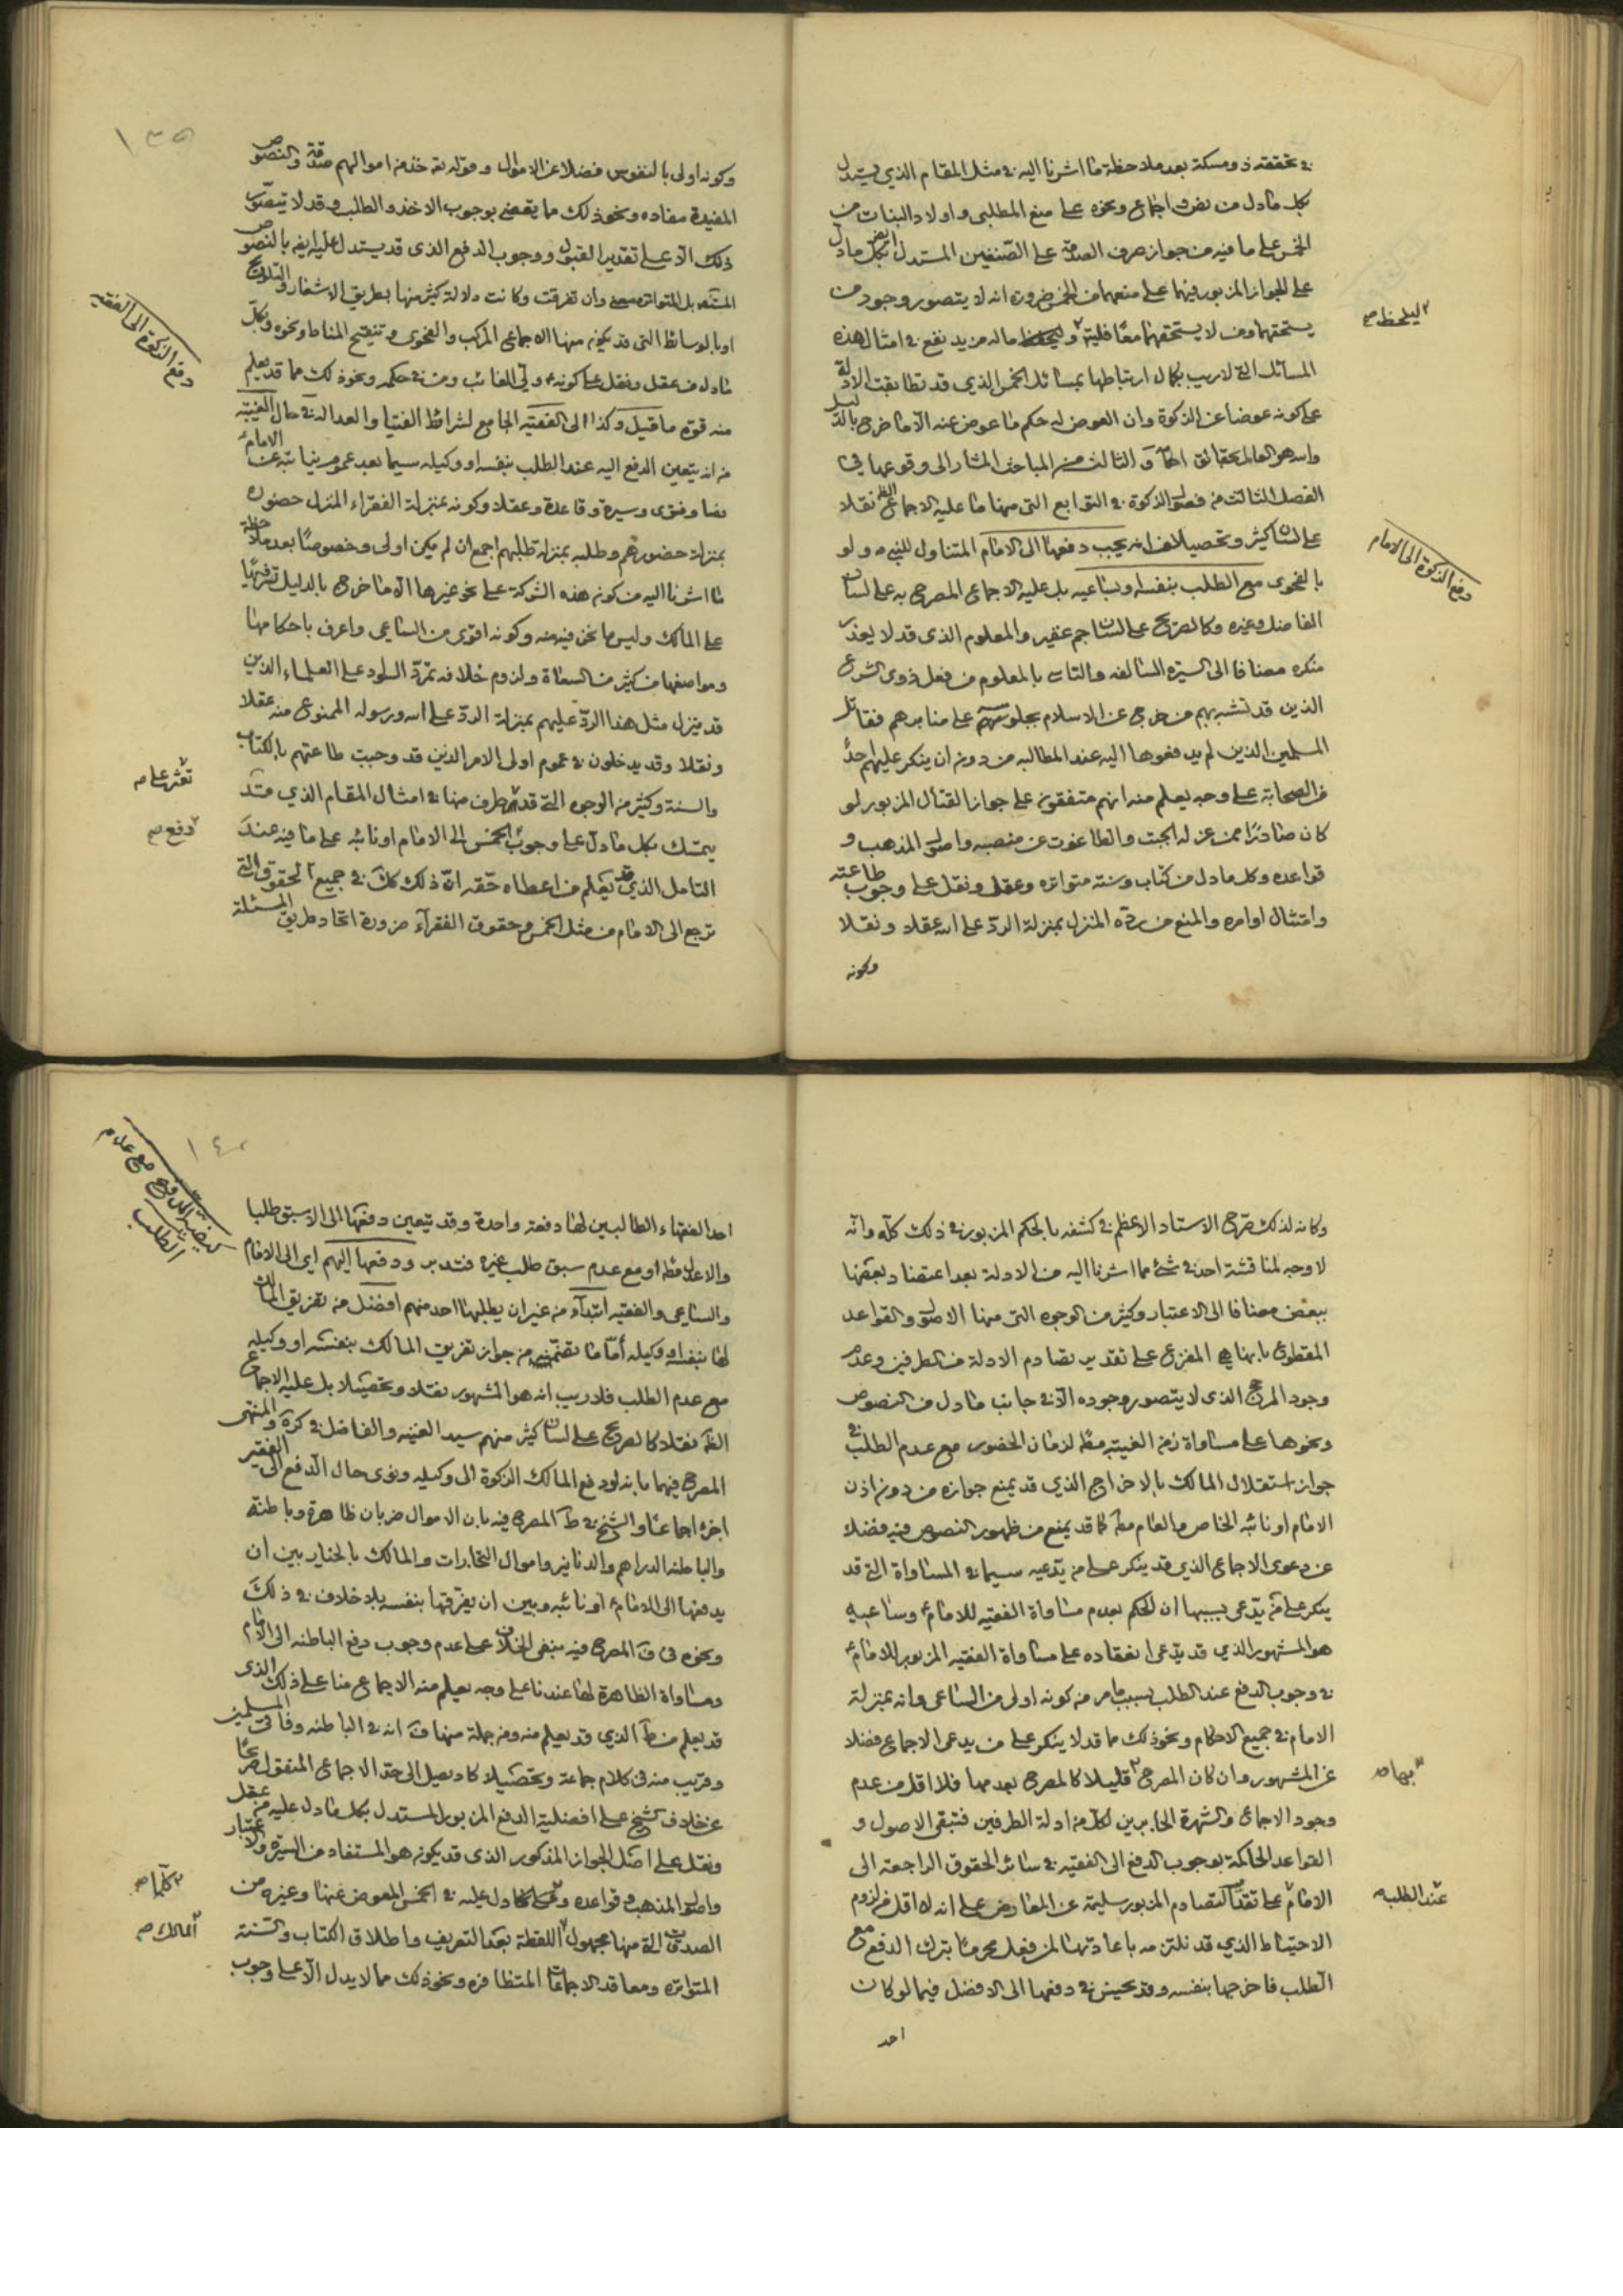 في تحققته ذو مسكة بعد ملاحظة ما اشرنا اليه في مثل المقام الذي يستدل
بكل ما دل من نص و اجماع و نحوه على منع المطلبى و اولاد البنات من
الخمس على ما فيه من جواز صرف الصدقة على الصنفين المستدل ايضا بكل ما دل
على الجواز المزبور فيهما على منعهما من الخمس ضرورة انه لا يتصور وجود من
يستحقهما ومن لا يستحقهما معًا فليته و ماله مزيد نفع في امثال هذه
ليلحظ صح
المسائل التي لا ريب بكمال ارتباطها بمسائل الخمس الذي قد تطابقت الادلة
على كونه عوضا عن الزكوة وان العوض له حكم ما عوض عنه الا ما خرج بالدليل
والله هو العالم بحقائق احكامه الثالث من المباحث المشار الى وقوعها في
الفصل الثالث من فصول الزكوة في التوابع التي منها ما عليه الاجماع الظ نقلا
على لسان كثير و تحصيلا من انه يجب دفعها الى الامام المتناول للنبي ص ولو
دفع الزكوة الى الامام
بالفحوى مع الطلب بنفسه او بساعيه بل عليه الاجماع المصرح به على لسان
الفاضل وغيره وكالمصرح على لسان جم غفير والمعلوم الذى قد لا يعذر
منكره مضافا الى السيرة السالفه والتاسى بالمعلوم من فعل ذوى الشرع
الذين قد تشبه بهم من خرج عن الاسلام بجلوسهم على منابرهم فقاتل
المسلمين الذين لم يدفعوها اليه عند المطالبه من دون ان ينكر عليهم احدٌ
من الصحابة على وجه يعلم منه انهم متفقون على جواز القتال المزبور لو
كان صادرًا ممن عزله الجبت والطاغوت عن منصبه واصول المذهب و
قواعده وكل ما دل من كتاب وسنه متواتره وعقل ونقل على وجوب طاعته
وامتثال اوامره والمنع من ردّه المنزل بمنزلة الردّ على الله عقلا ونقلا
وكونه
١٣٩
وكونه اولى بالنفوس فضلا عن الاموال وقوله تع خذ من اموالهم صدقة والنصوص
المفيدة مفاده و نحو ذلك مما يقضى بوجوب الاخذ والطلب وقد لا يتصور
ذلك الا على تقدير القبول ووجوب الدفع الذى قد يستدل عليه ايضا بالنصوص
المستفيضة بل المتواتره معنى وان تفرقت وكانت دلالة كثير منها بطريق الاشعار والتلويح
او بالوسائط التى قد يكون منها الاجماع المركب والفحوى و تنقيح المناط ونحوه وبكل
ما دل من عقل ونقل على كونه ع ولى الغائب ومن في حكمه ونحو ذلك مما قد يعلم
دفع الزكوة الى الفقيه
منه قوة ما قيل وكذا الى الفقيه الجامع لشرائط الفتيا والعدالة في حال الغيبة
من انه يتعين الدفع اليه عند الطلب بنفسه او وكيله سيما بعد عموم نيابته عن الامام
نصا وفتوى وسيرة وقاعدة وعقلا وكونه بمنزلة الفقراء المنزل حضوره
بمنزلة حضورهم وطلبه بمنزلة طلبهم اجمع ان لم يكن اولى وخصوصًا بعد ملاحظة
ما اشرنا اليه من كون هذه الشركة على نحو غيرها الا ما خرج بالدليل ترفيهًا
على المالك وليس ما نحن فيه منه وكونه اقوى من الساعى واعرف باحكامها
ومواضعها من كثير من السعاة ولزوم خلافه تمرّد السواد على العلماء الذين
قد ينزل مثل هذا الردّ عليهم بمنزلة الردّ على الله ورسوله الممنوع منه عقلا
ونقلا وقد يدخلون في عموم اولى الامر الذين قد وجبت طاعتهم بالكتاب
والسنة وكثير من الوجوه التي قد طرف منها في امثال المقام الذي قد
تعثر على صح
يتمسك بكل ما دل على وجوب الخمس الى الامام او نائبه على ما فيه عند
دفع صح
التامل الذي قد يعلم من اعطاه حقه ان ذلك كك في جميع الحقوق التى
ترجع الى الامام من مثل الخمس وحقوق الفقرآء ضرورة اتحاد طريق المسئلة
وكانه لذلك صرح الاستاد الاعظم في كشفه بالحكم المزبور في ذلك كله وانه
لا وجه لمناقشة احد في شئ مما اشرنا اليه من الادلة بعد اعتضاد بعضها
ببعض مضافا الى الاعتبار وكثير من الوجوه التى منها الاصول والقواعد
المقطوع بانها هي المفزع على تقدير تصادم الادلة من الطرفين وعدم
وجود المرجح الذى لا يتصور وجوده الا في جانب ما دل من النصوص
ونحوها على مساواة زمن الغيبة مط لزمان الحضور مع عدم الطلب في
جواز استقلال المالك بالاخراج الذي قد يمنع جوازه من دون اذن
الامام او نائبه الخاص والعام مط كما قد يمنع من ظهور النصوص فيه فضلا
عن دعوى الاجماع الذي قد ينكر على من يدّعيه سيما في المساواة التي قد
ينكر على من يدّعى بسببها ان الحكم بعدم مساواة الفقيه للامام ع وساعيه
هو المشهور الذي قد يدّعى انعقاده على مساواة الفقيه المزبور للامام ع
في وجوب الدفع عند الطلب بسبب ما مر من كونه اولى من الساعى وانه بمنزلة
الامام في جميع الاحكام ونحو ذلك مما قد لا ينكر على من يدعى الاجماع فضلا
عن المشهور وان كان المصرح قليلا كالمصرح بعدمها فلا اقل من عدم
بها صح
وجود الاجماع والشهرة الجابرين لكل من ادلة الطرفين فتبقى الاصول و
القواعد الحاكمة بوجوب الدفع الى الفقيه في سائر الحقوق الراجعة الى
الامام ع على تقدير التصادم المزبور سليمة عن المعارض على انه لا اقل من لزوم
عند الطلب صح
الاحتياط الذي قد نلتزمه باعادتها لمن فعل محرمًا بترك الدفع مع
الطلب فاخرجها بنفسه وقد في دفعها الى الافضل فيما لو كان
احد
١٤٠
احد الفقهاء الطالبين لها دفعة واحدة وقد يتعين دفعها الى الاسبق طلبا
والاعدل مط او مع عدم سبق طلب غيره فتدبر ودفعها اليهم اى الى الامام
كيفية الدفع مع عدم الطلب
والساعى والفقيه ابتدآء من غير ان يطلبها احد منهم افضل من تفريق المالك
لها بنفسه او وكيله أما ما تضمنه من جواز تفريق المالك بنفسه او وكيله
مع عدم الطلب فلا ريب انه هو المشهور نقلا وتحصيلا بل عليه الاجماع
الظ نقلا كالمصرح على لسان كثير منهم سيد الغنيه والفاضل في كرة والمنتهى
المصرح فيهما بانه لو دفع المالك الزكوة الى وكيله ونوى حال الدفع الى الفقير
اجزء اجماعًا والشيخ في ط المصرح فيه بان الاموال ضربان ظاهرة وباطنة
والباطنه الدراهم والدنانير واموال التجارات والمالك بالخيار بين ان
يدفعها الى الامام ع او نائبه وبين ان يفرقها بنفسه بلا خلاف في ذلك
ونحوه فى ف المصرح فيه بنفى الخلاف على عدم وجوب دفع الباطنه الى الامام
ومساواة الظاهرة لها عندنا على وجه يعلم منه الاجماع منا على ذلك الذى
قد يعلم من ط الذي قد يعلم منه ومن جملة منها ف انه في الباطنه وفاقى المسلمين
وقريب منه فى كلام جماعة وتحصيلا كاد يصل الى حد الاجماع المنقول صريحًا
عن خلاف الشيخ على افضلية الدفع المزبور المستدل بكل ما دل عليه من عقل
ونقل على اصل الجواز المذكور الذى قد يكون هو المستفاد من السيرة والاعتبار
واصول المذهب وقواعده و ما دل عليه في الخمس المعوض عنها وغيره من
كلما صح
الصدقات التي منها مجهول اللقطة بعد التعريف واطلاق الكتاب والسنة
المالك صح
المتواتره ومعاقد الاجماعات المتظافره ونحو ذلك مما لا يدل الا على وجوب